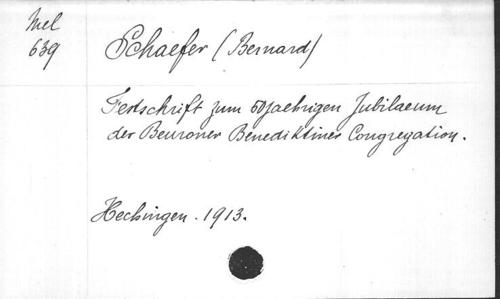 Mel
639
Schaefer (Bernard)
Festschrift zum 50jaehrigen Jubilaeum
der Beuroner Benediktiner Congregation.
Hechingen. 1913.